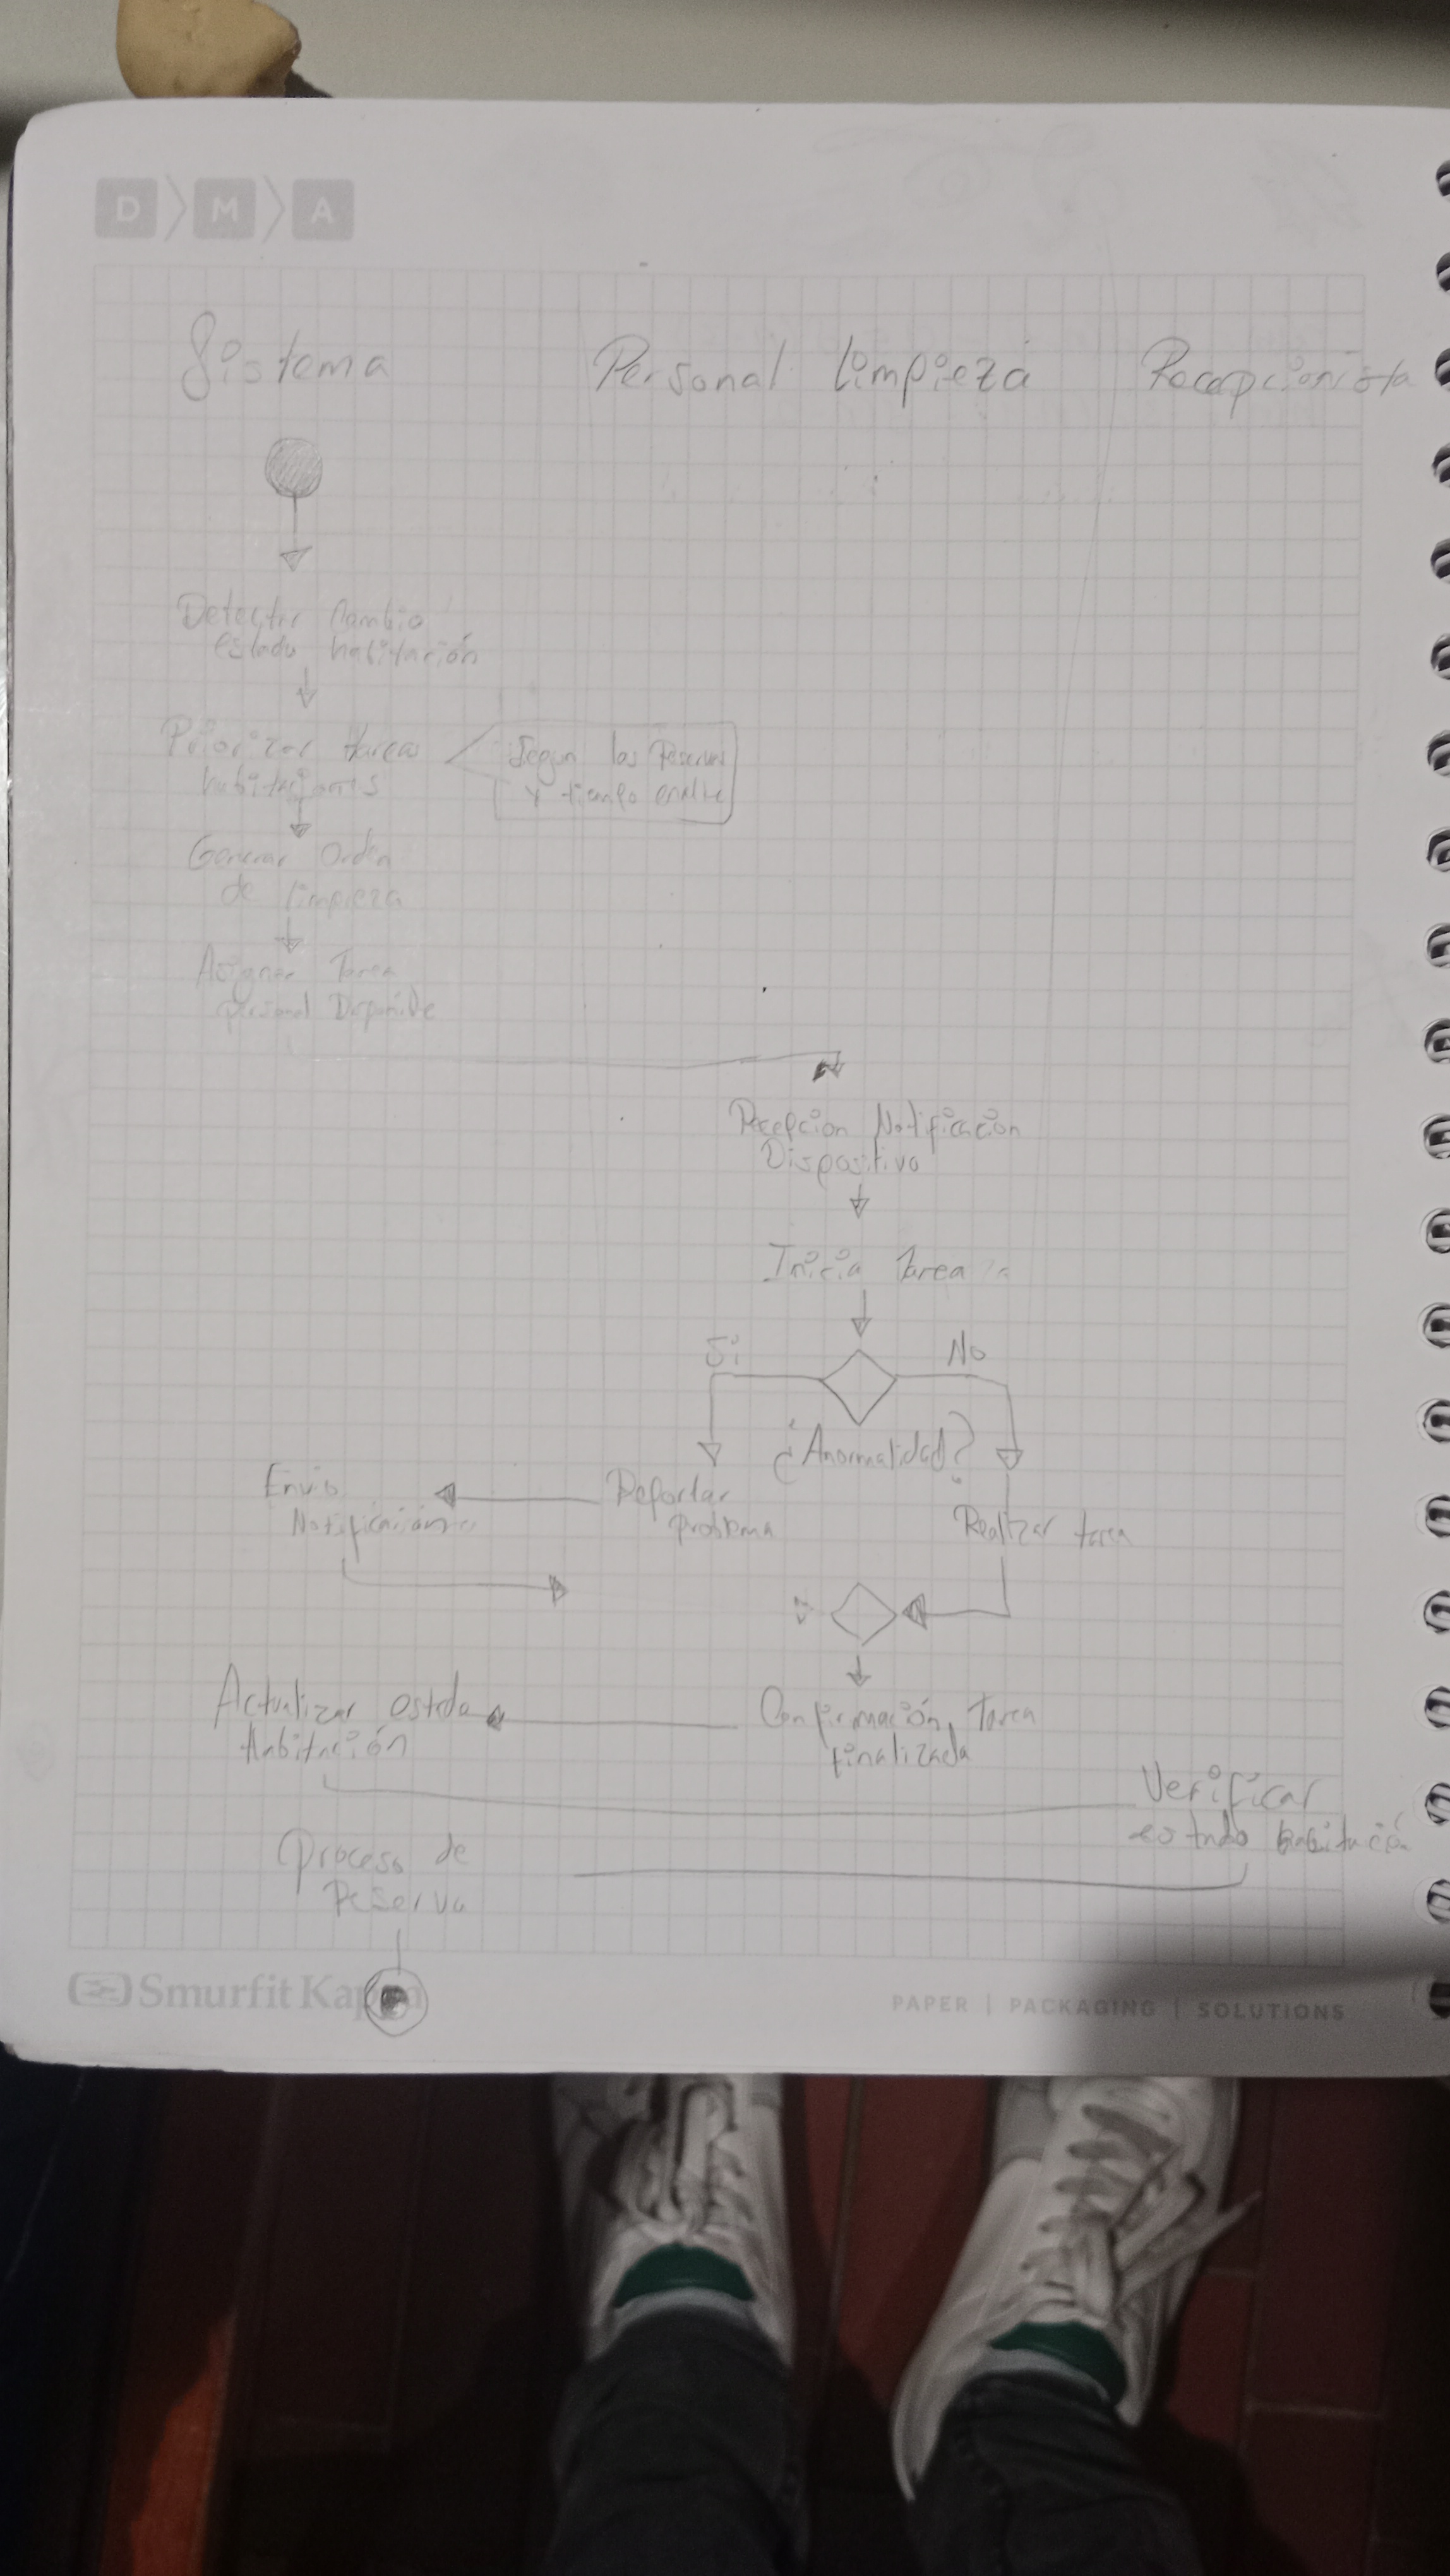 D M A
Sistema Personal limpieza Recepcionista
Detectar Cambio
estado habitación
Priorizar tareas
habitaciones
Segun las Reservas
y tiempo
Generar Orden
de limpieza
Asignar Tarea
personal Disponible
Recepcion Notificación
Dispositivo
Inicia Tarea
Si No
¿Anormalidad?
Envio
Notificación
Reportar
problema
Realizar tarea
Actualizar estado
habitación
Confirmación Tarea
finalizada
Verificar
estado habitación
Proceso de
Reserva
Smurfit Kappa
PAPER | PACKAGING | SOLUTIONS